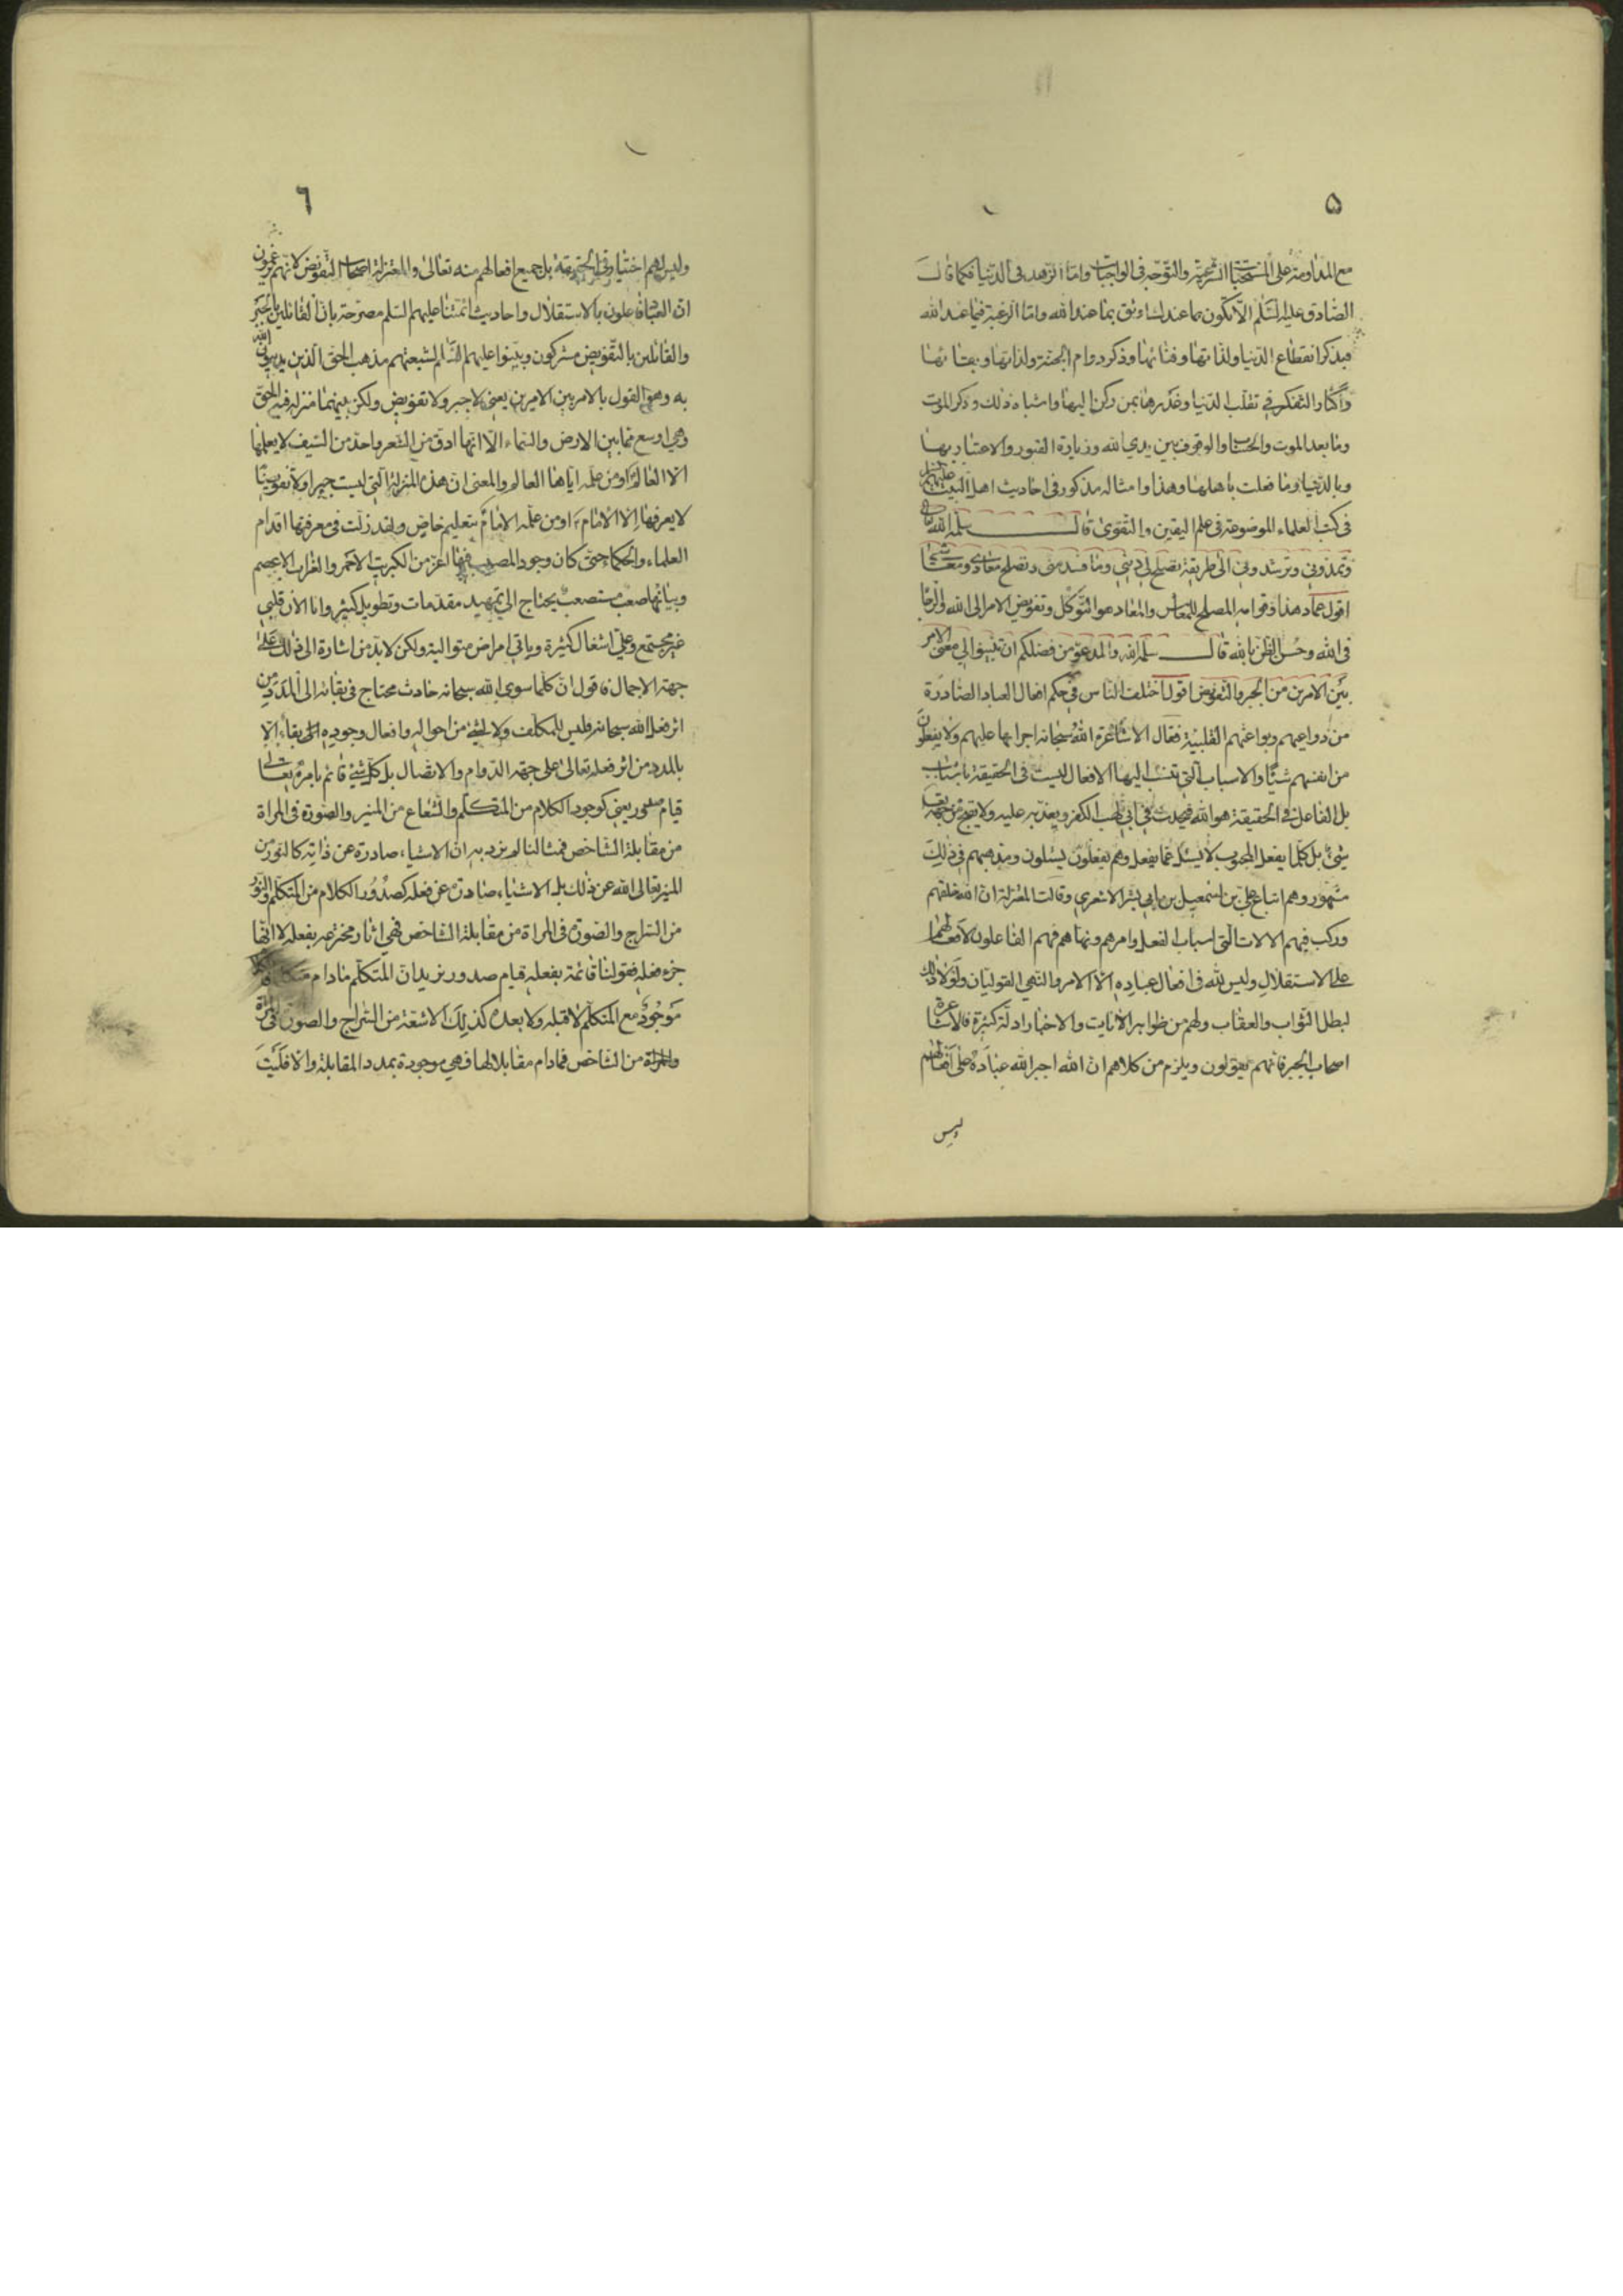 ٥
مع المداومة على المستحبات الشرعية والتوجه فى الواجبات واما الزهد فى الدنيا فكما قال
الصادق عليه السلم الا تكون بما عندك اوثق بما عند الله واما الرغبة فيما عند الله
فبذكر انقطاع الدنيا ولذاتها وفنائها وذكر دوام الجنة ولذاتها وبقائها
واكثار التفكر فى تقلب الدنيا وغدرها بمن ركن اليها واشباه ذلك وذكر الموت
وما بعد الموت والحساب والوقوف بين يدي الله وزيادة القبور والاعتبار بها
وبالدنيا وما فعلت باهلها وهذا وامثاله مذكور فى احاديث اهل البيت عليهم السلم
فى كتب العلماء الموضوعة فى علم اليقين والتقوى قال سلمه الله تعالى
وتمدونى وترشدونى الى طريقة تصلح لى دينى وما فسد منى وتصلح معادى ومعاشى
اقول عماد هذا وقوامه المصلح للمعاش والمعاد هو التوكل وتفويض الامر الى الله والرجا
فى الله وحسن الظن بالله قال سلمه الله والمدعو من فضلكم ان تبينوا لى معنى الامر
بين الامرين من الجبر والتفويض اقول اختلف الناس فى حكم افعال العباد الصادرة
من دواعيهم وبواعثهم القلبية فقال الاشاعرة الله سبحانه اجراها عليهم ولا يفعلون
من انفسهم شيئا والاسباب التى تنسب اليها الافعال ليست فى الحقيقة باسباب
بل الفاعل فى الحقيقة هو الله فيحدث فى ابى لهب الكفر ويعذبه عليه ولا يقبح من جهته
شئ بل كلما يفعل المحبوب لا يسئل عما يفعل وهم يفعلون يسئلون ومذهبهم فى ذلك
مشهور وهم اتباع علي بن اسمعيل بن ابى بشر الاشعري وقالت المعتزلة ان الله خلقهم
وركب فيهم الالات التى اسباب الفعل وامرهم ونهاهم فهم الفاعلون لافعالهم
على الاستقلال وليس لله فى افعال عباده الا الامر والنهي القوليان ولولا ذلك
لبطل الثواب والعقاب ولهم من ظواهر الايات والاخبار ادلة كثيرة فالاشاعرة
اصحاب الجبر فانهم يقولون ويلزم من كلامهم ان الله اجبر الله عباده على افعالهم
وليس
٦
وليس لهم اختيار فى الحقيقة بل جميع افعالهم منه تعالى والمعتزلة اصحاب التفويض لانهم يزعمون
ان العباد فاعلون بالاستقلال واحاديث ائمتنا عليهم السلم مصرحة بان القائلين بالجبر
والقائلين بالتفويض مشركون وبينوا عليهم السلم لشيعتهم مذهب الحق الذى يدين الله
به وهو القول بالامر بين الامرين يعنى لا جبر ولا تفويض ولكن بينهما منزلة فيه الحق
وهى اوسع مما بين الارض والسماء الا انها ادق من الشعر واحد من السيف لا يعلمها
الا العالم او من علمه اياها العالم والمعنى ان هذه المنزلة التى ليست جبرا ولا تفويضا
لا يعرفها الا الامام او من علمه الامام بتعليم خاص ولقد زلت فى معرفتها اقدام
العلماء والحكماء حتى كان وجود المصيب فيها اعز من الكبريت الاحمر والغراب الاعصم
وبيانها صعب مستصعب يحتاج الى تمهيد مقدمات وتطويل كثير وانا الان قلبى
غير مجتمع وعلي اشغال كثيرة وياتى امراض متوالية ولكن لا بد من اشارة الى ذلك على
جهة الاجمال فاقول ان كلما سوى الله سبحانه حادث محتاج فى بقائه الى المدد من
اثر فعل الله سبحانه فليس للمكلف ولا لشئ من احواله وافعال وجوديه بقاء الا
بالمدد من اثر فعله تعالى على جهة الدوام والاتصال بل كل شئ قائم بامره تعالى
قيام صدور يعنى كوجود الكلام من المتكلم والشعاع من المنير والصورة فى المراة
من مقابلة الشاخص فمثالنا لم نرد به ان الاشياء صادرة عن ذاته كالنور من
المنير تعالى الله عن ذلك بل الاشياء صادرة عن فعله كصدور الكلام من المتكلم والنور
من السراج والصورة فى المراة من مقابلة الشاخص فهى اثار مخترعة بفعله لا انها
جزء فعله فقولنا قائمة بفعله قيام صدور نريد ان المتكلم مادام
موجود مع المتكلم لا قبله ولا بعده كذلك الاشعة من السراج والصورة فى المراة
من الشاخص فمادام مقابلا لها فهى موجودة بمدد المقابلة والا فليست